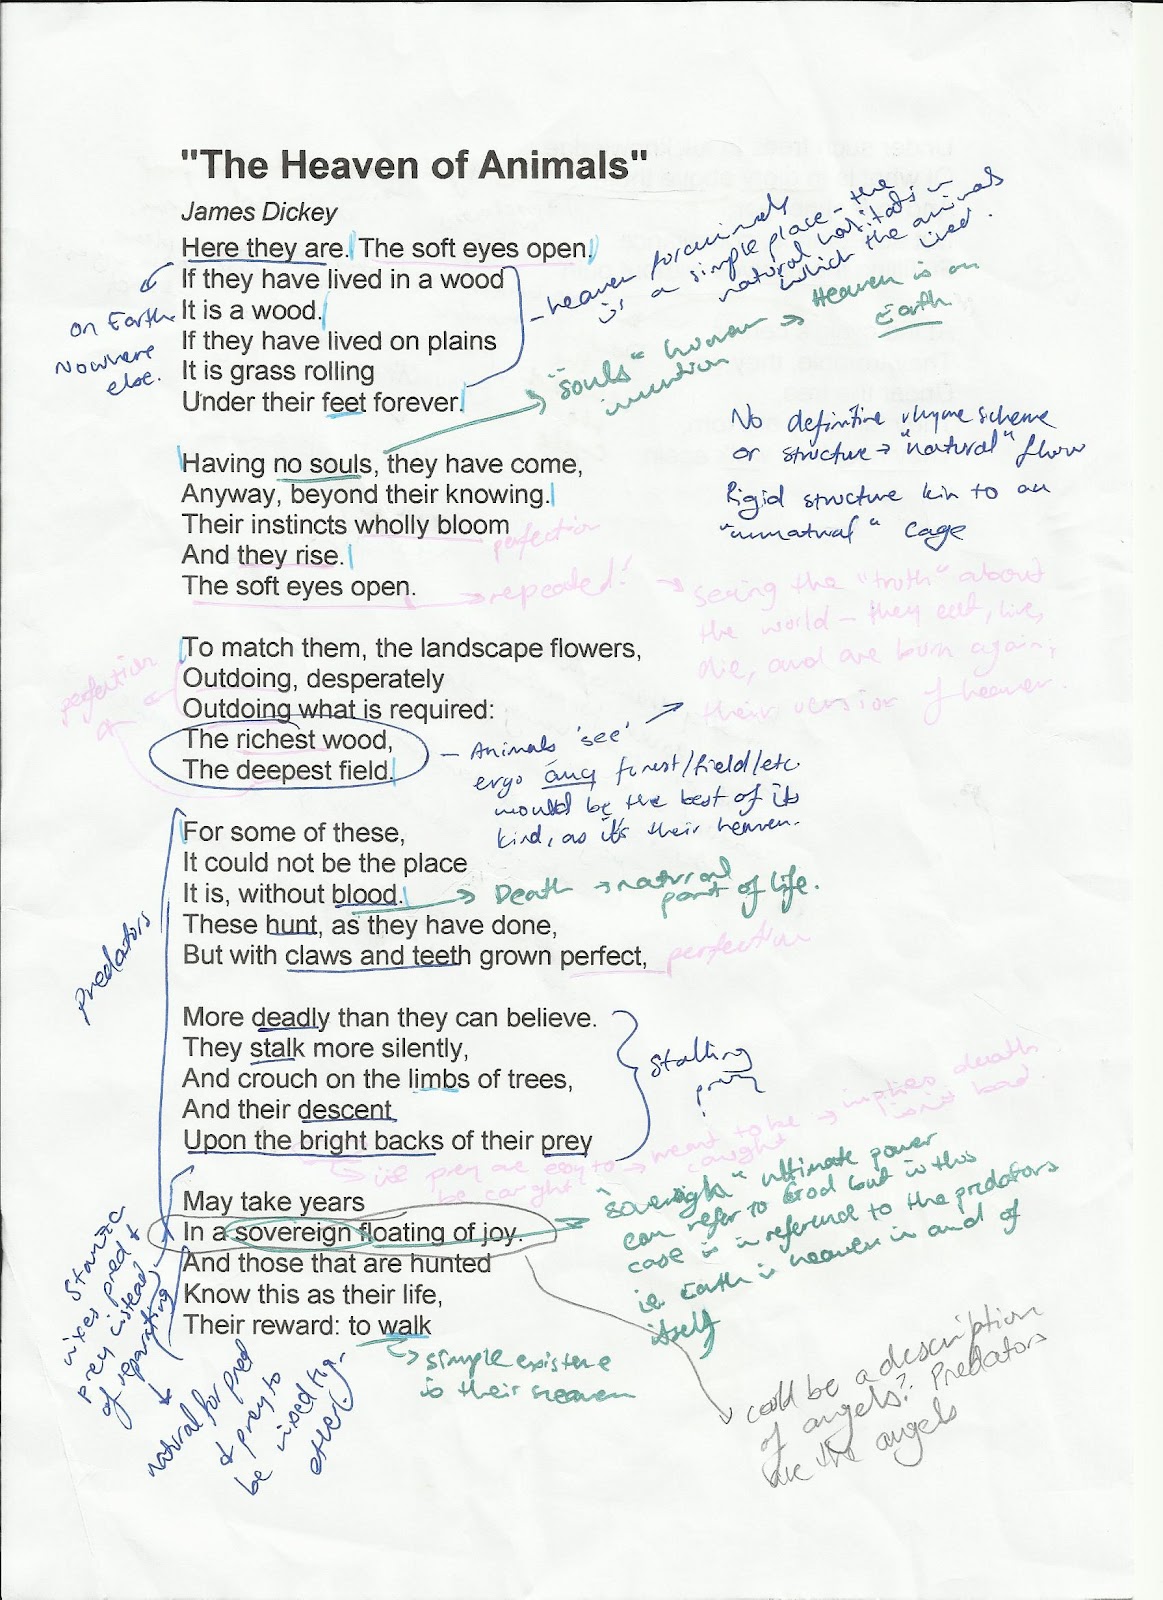 "The Heaven of Animals"
James Dickey
Here they are. The soft eyes open.
If they have lived in a wood
It is a wood.
If they have lived on plains
It is grass rolling
Under their feet forever.
on Earth
Nowhere
else.
- heaven for animals
is a simple place - the
natural habitats in
which the animals
lived.
"souls" human
invention
→ Heaven is on
Earth
No definitive rhyme scheme
or structure → "natural" flow
Rigid structure kin to an
"unnatural" cage
Having no souls, they have come,
Anyway, beyond their knowing.
Their instincts wholly bloom
And they rise.
The soft eyes open.
perfection
→ repeated!
→ seeing the "truth" about
the world - they eat, live,
die, and are born again;
their version of heaven.
To match them, the landscape flowers,
Outdoing, desperately
Outdoing what is required:
The richest wood,
The deepest field.
perfection
- Animals 'see'
ergo any forest/field/etc
would be the best of its
kind, as it's their heaven.
For some of these,
It could not be the place
It is, without blood.
These hunt, as they have done,
But with claws and teeth grown perfect,
→ Death → natural
part of life.
perfection
Predators
More deadly than they can believe.
They stalk more silently,
And crouch on the limbs of trees,
And their descent
Upon the bright backs of their prey
stalking
prey
prey are easy to
be caught
→ meant to be
caught
→ implies death
isn't bad.
May take years
In a sovereign floating of joy.
And those that are hunted
Know this as their life,
Their reward: to walk
→ "sovereign" ultimate power
can refer to God but in this
case is in reference to the predators
ie Earth is heaven in and of
itself
→ simple existence
is their heaven
Stanza
mixes pred +
prey instead
of separating
natural for pred
+ prey to
be mixed tog-
ether
could be a description
of angels? Predators
are the angels